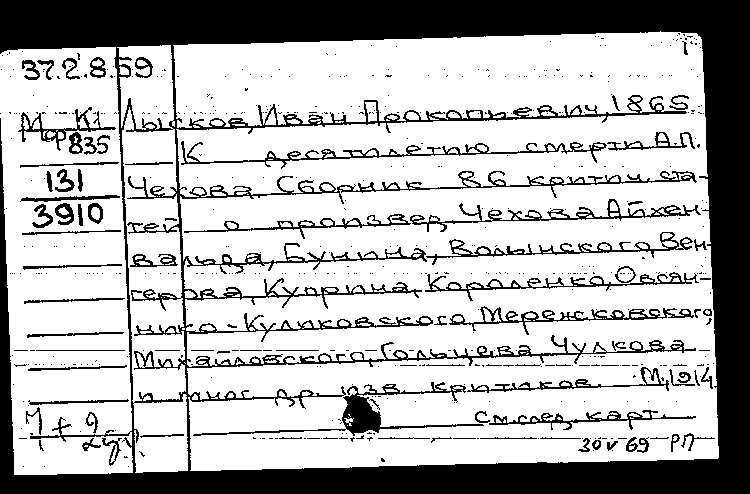 1
37.2.8.59
Мор К1 Лысков, Иван Прокопьевич, 1865
835 К десятилетию смерти А.П.
131 Чехова. Сборник 86 критич. ста-
3910 тей о произвед. Чехова Айхен-
вальда, Бунина, Волынского, Вен-
герова, Куприна, Короленко, Овсян-
нико-Куликовского, Мережковского,
Михайловского, Гольцева, Чулкова
и мног. др. изв. критиков. М., 1914
См. след. карт.
30 V 69 РП